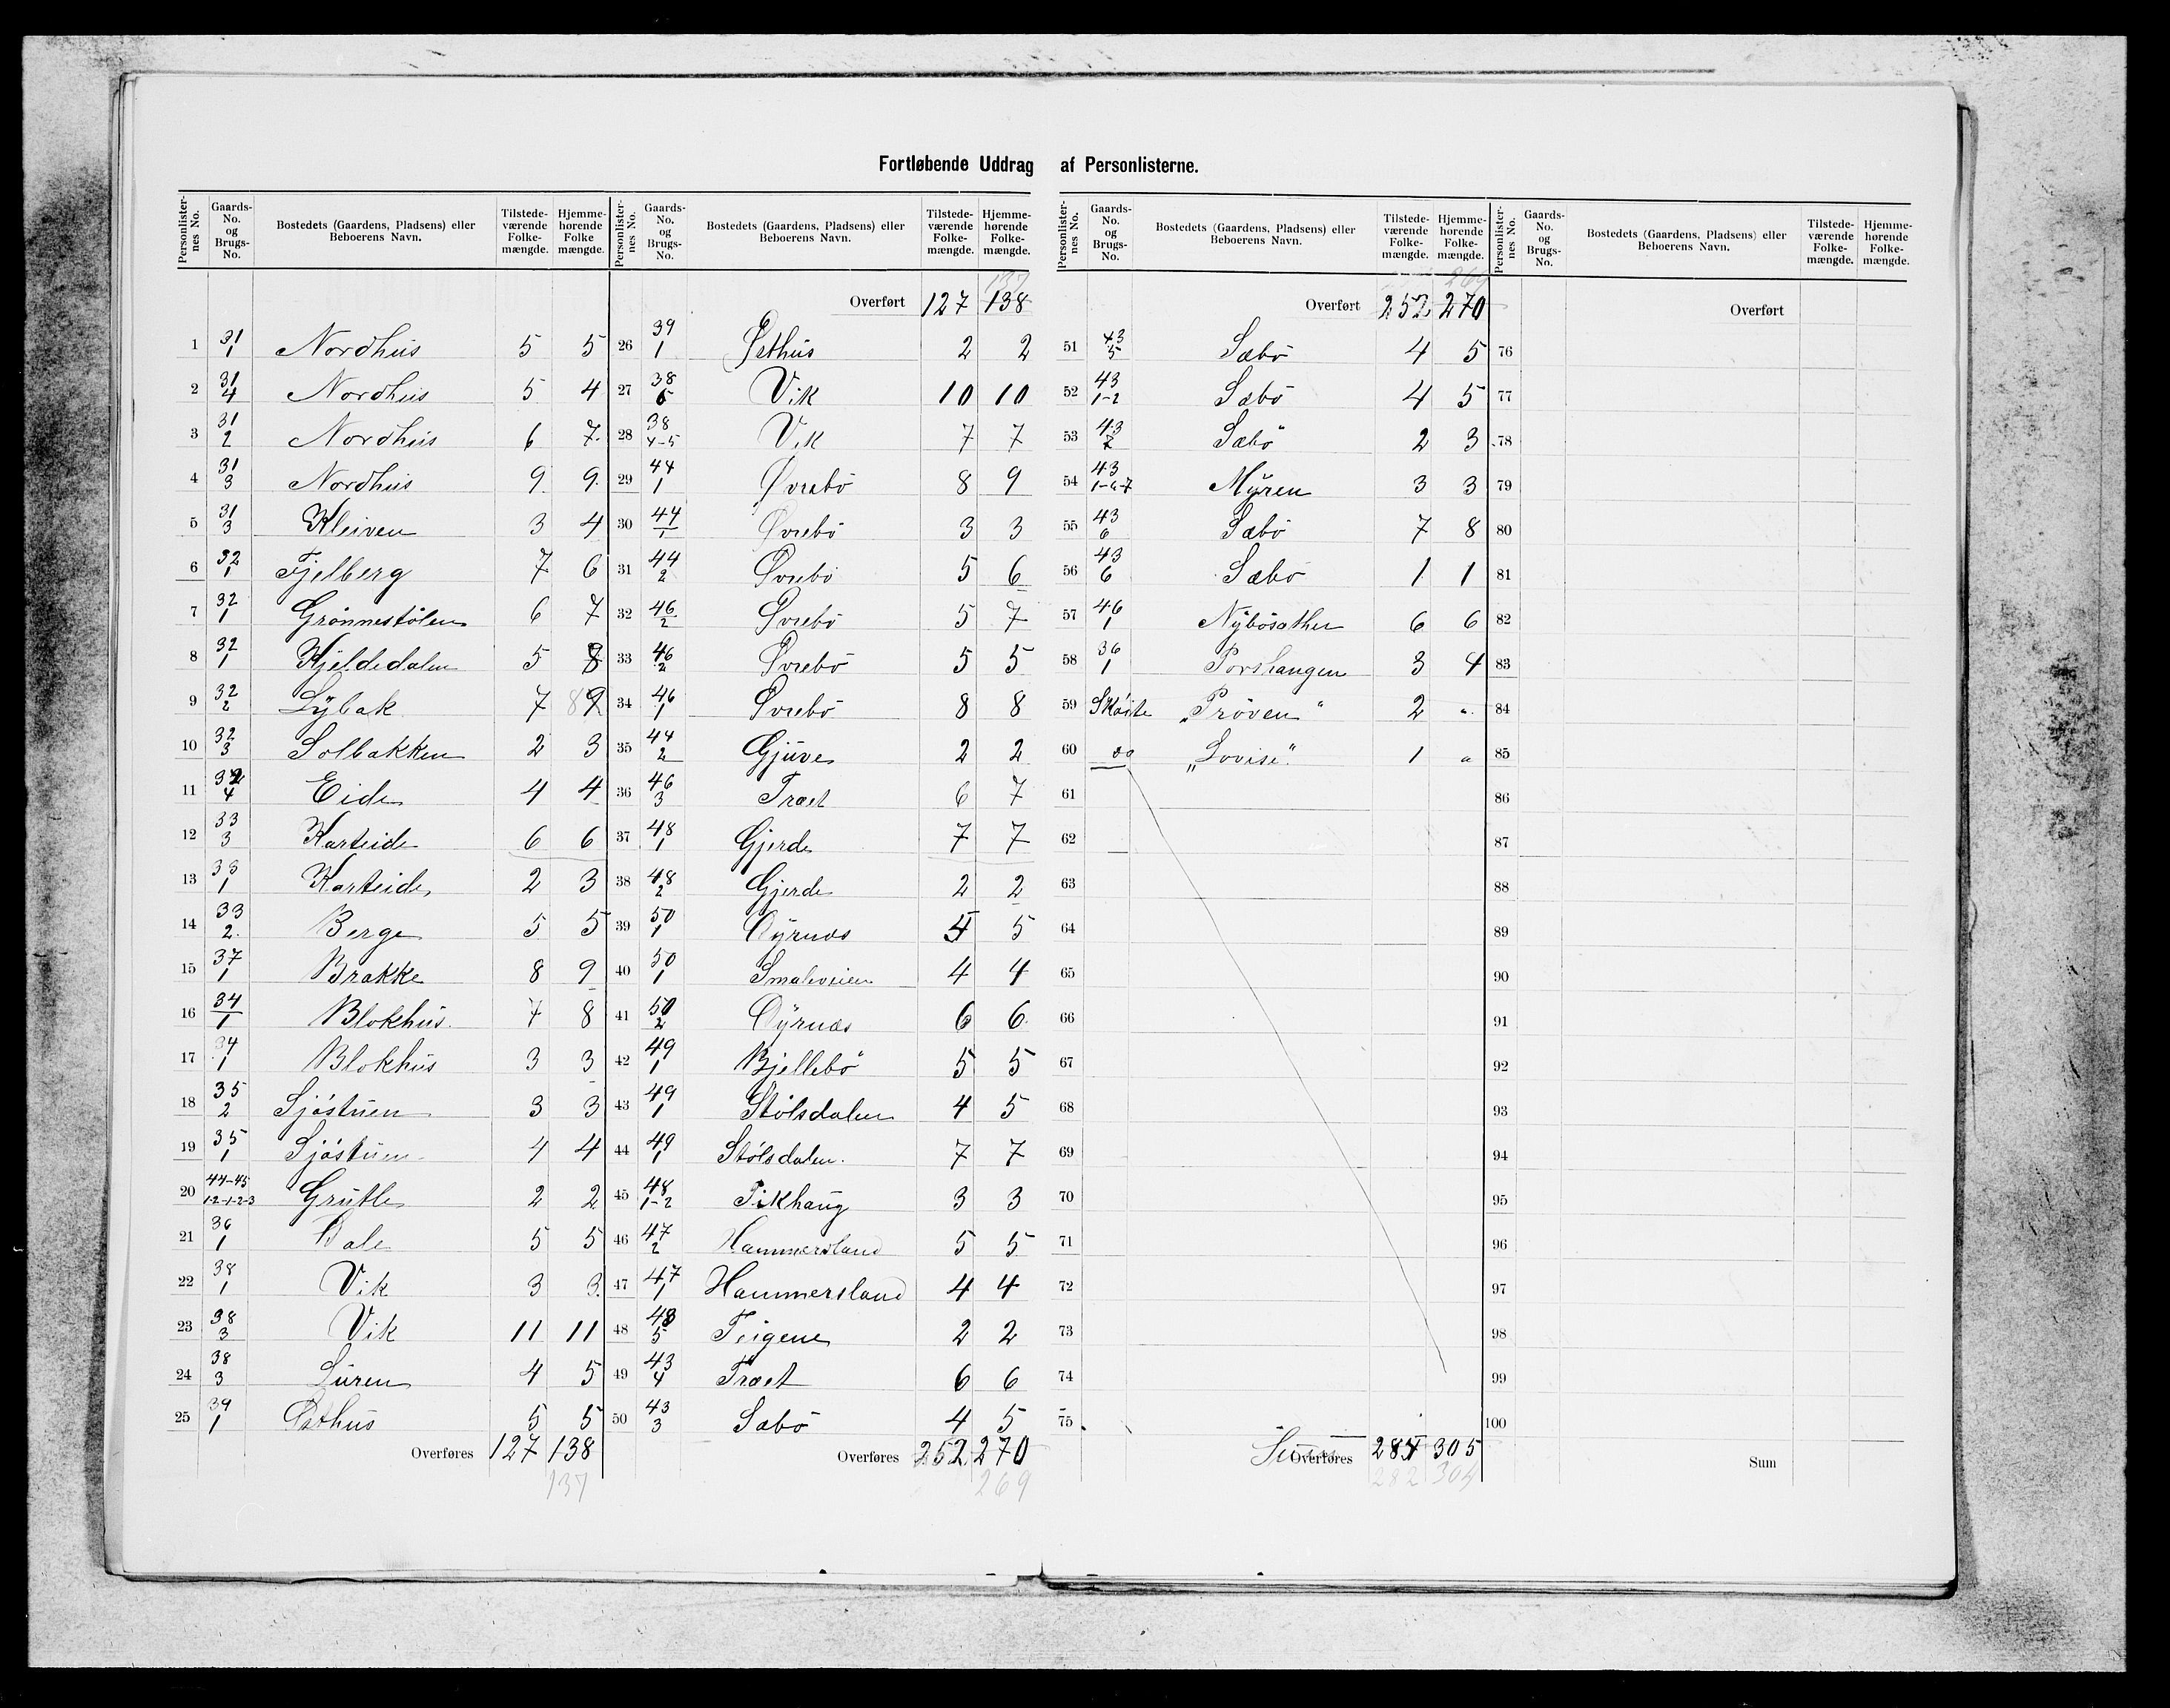 Fortløbende Uddrag af Personlisterne.
Personlister-nes No. Gaards-No. og Brugs-No. Bostedets (Gaardens, Pladsens) eller Beboerens Navn. Tilstede-værende Folke-mængde. Hjemme-hørende Folke mængde.
1 31/1 Nordhus 5 5
2 31/4 Nordhus 5 4
3 31/2 Nordhus 6 7
4 31/3 Nordhus 9 9
5 31/3 Kleiven 3 4
6 32/1 Fjelberg 7 6
7 32/1 Grönnestölen 6 7
8 32/1 Kjeldedalen 5 8
9 32/2 Lybak 7 8 9
10 32/3 Solbakken 2 3
11 32/4 Eide 4 4
12 33/3 Karteide 6 6
13 33/1 Karteide 2 3
14 33/2 Berge 5 5
15 37/1 Brakke 8 9
16 34/1 Blokhus 7 8
17 34/1 Blokhus 3 3
18 35/2 Sjöstuen 3 3
19 35/1 Sjöstuen 4 4
20 44-45/1-2-1-2-3 Grutle 2 2
21 36/1 Dale 5 5
22 38/1 Vik 3 3
23 38/3 Vik 11 11
24 38/3 Luren 4 5
25 39/1 Östhus 5 5
Overføres 127 138
137
Personlister-nes No. Gaards-No. og Brugs-No. Bostedets (Gaardens, Pladsens) eller Beboerens Navn. Tilstede-værende Folke-mængde. Hjemme-hørende Folke-mængde.
137
Overført 127 138
26 39/1 Östhus 2 2
27 38/6 Vik 10 10
28 38/4-5 Vik 7 7
29 44/1 Øvrebö 8 9
30 44/1 Øvrebö 3 3
31 44/2 Øvrebö 5 6
32 46/2 Øvrebö 5 7
33 46/2 Øvrebö 5 5
34 46/1 Øvrebö 8 8
35 44/2 Gjuve 2 2
36 46/3 Træet 6 7
37 48/1 Gjerde 7 7
38 48/2 Gjerde 2 2
39 50/1 Öyrnæs 5
40 50/1 Smalveien 4 4
41 50/2 Öyrnæs 6 6
42 49/1 Bjellebö 5 5
43 49/1 Stölsdalen 4 5
44 49/1 Stölsdalen 7 7
45 48/1-2 Pikhaug 3 3
46 47/2 Hammersland 5 5
47 47/1 Hammersland 4 4
48 43/5 Teigene 2 2
49 43/4 Træet 6 6
50 43/3 Sæbö 4 5
Overføres 252 270
269
Personlister-nes No. Gaards-No. og Brugs-No. Bostedets (Gaardens, Pladsens) eller Beboerens Navn. Tilstede-værende Folke-mængde. Hjemme-hørende Folke-mængde.
269
Overført 252 270
51 43/5 Sæbö 4 5
52 43/1-2 Sæbö 4 5
53 43/7 Sæbö 2 3
54 43/1-6-7 Myren 3 3
55 43/6 Sæbö 7 8
56 43/6 Sæbö 1 1
57 46/1 Nybösæther 6 6
58 36/1 Porshaugen 3 4
59 Sköite „Pröven" 2 "
60 do „Lovise" 1 "
61
62
63
64
65
66
67
68
69
70
71
72
73
74
75
Sum Overføres 284 305
282 304
Personlister-nes No. Gaards-No. og Brugs-No. Bostedets (Gaardens, Pladsens) eller Beboerens Navn. Tilstede-værende Folke-mængde. Hjemme-hørende Folke-mængde.
Overført
76
77
78
79
80
81
82
83
84
85
86
87
88
89
90
91
92
93
94
95
96
97
98
99
100
Sum